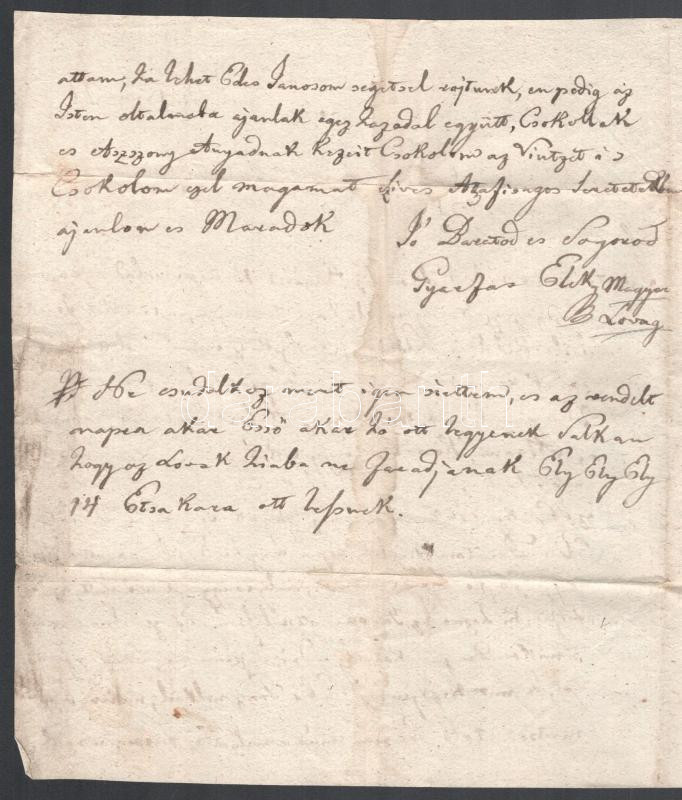 attam, ha lehet Edes Janosom segitsel rajtunk, en pedig az
Isten oltalmaba ajanlak egez hazadal együtt, Csokollak
es Aszszony Anyadnak kezeit Csokolom az Vintzét is
Csokolom ezel magamat szives Atyafisagos
ajanlom es Maradok Jó Baratod es Sogorod
Gyarfas Elek Magyar
B Lovag
Ne csudalkoz mert igen siettem, es az rendelt
napra akar Esső akar hó ott legyenek Falkan
hogy az Lovak hiaba ne faradjanak Ely Ely Ely
14 Etsakara ott leszunk.
darabanth